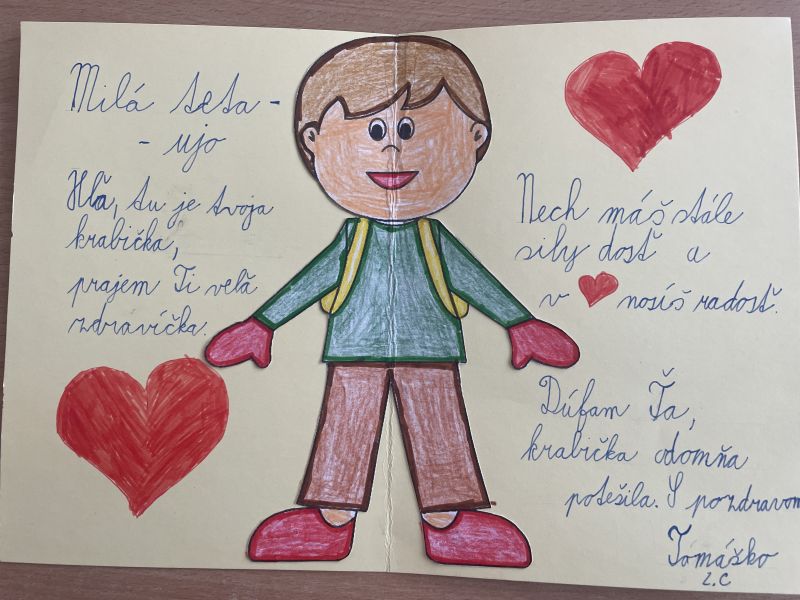 Milá teta -
- ujo
Hľa, tu je tvoja
krabička,
prajem Ti veľa
zdravíčka.
Nech máš stále
sily dosť a
v nosíš radosť.
Dúfam Ťa,
krabička odomňa
potešila. S pozdravom
Tomáško
2.C